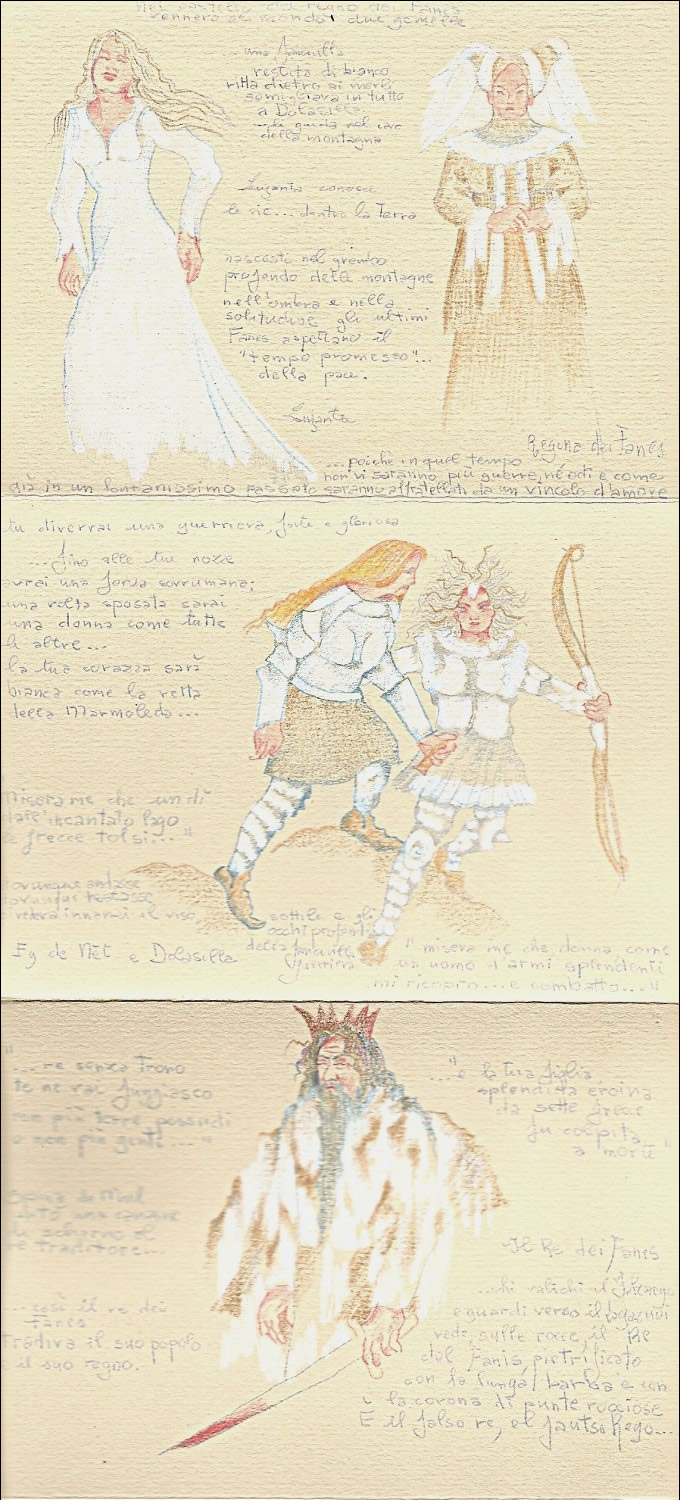 Nel castello del regno dei Fanes
vennero al mondo due gemelle
...una fanciulla
vestita di bianco
ritta dietro ai merli
somigliava in tutto
a Dolasilla
...la guida nel
della montagna
Lujanta conosce
le vie... dentro la terra
nascosti nel grembo
profondo delle montagne
nell'ombra e nella
solitudine gli ultimi
Fanes aspettano il
"tempo promesso"...
della pace.
Lujanta
Regina dei Fanes
...poiché in quel tempo
non vi saranno più guerre, né odi e come
già in un lontanissimo passato saranno affratellati da un vincolo d'amore
tu diverrai una guerriera, forte e gloriosa
...fino alle tue nozze
avrai una forza sovrumana;
una volta sposata sarai
una donna come tutte
le altre...
la tua corazza sarà
bianca come la vetta
della Marmoleda...
Misera me che un dì
dall'incantato lago
le frecce tolsi..."
ovunque andasse
ovunque
vedeva innanzi il viso,
sottile e gli
occhi profondi
della fanciulla
guerriera
Ey de Nèt e Dolasilla
"misera me che, donna, come
un uomo d'armi splendenti
mi ricopro... e combatto..."
"...re senza trono
te ne vai fuggiasco
non più terre possiedi
o non più gente..."
Spina de Mul
una
scherno al
re traditore...
...così il re dei
Fanes
tradiva il suo popolo
e il suo regno.
..."e la tua figlia
splendida eroina
da sette frecce
fu colpita
a morte"
Il Re dei Fanes
...chi valichi il
e guardi verso il
vede, sulle rocce, il "Re
dei Fanis, pietrificato
con la lunga barba e con
la corona di punte rocciose
È il falso re, el fautso Rego...